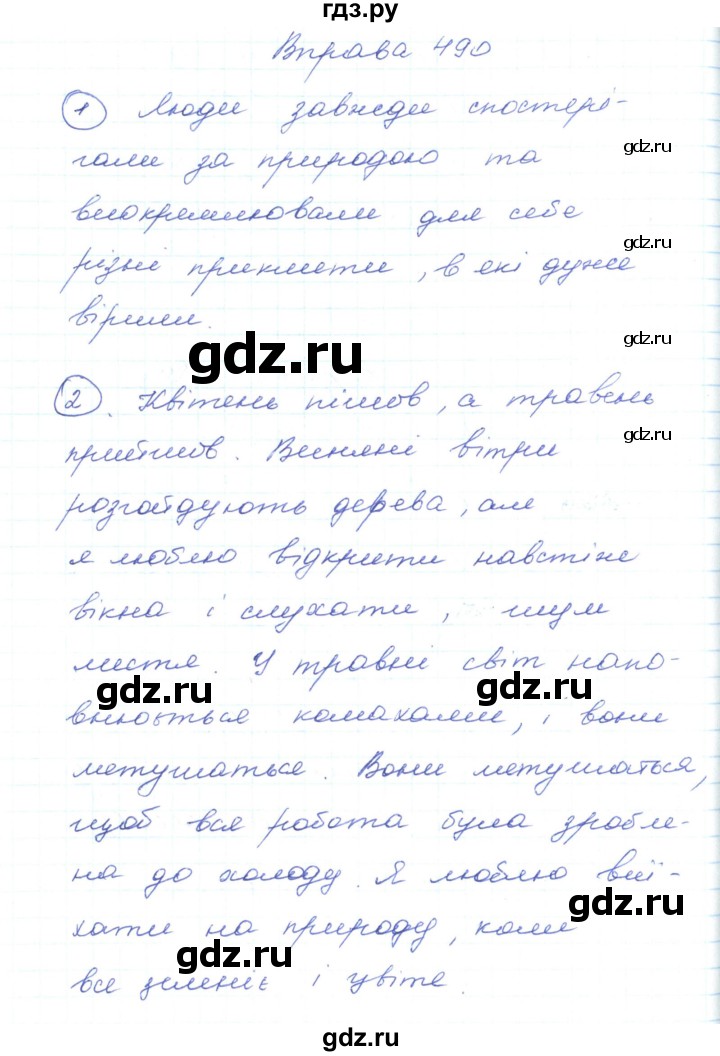 гдз.ру
Вправа 490
1 Люди завжди спостері-
гали за природою та
gdz.ru
виокремлювали для себе
gdz.ru
різні прикмети, в які дуже
вірили.
gdz.ru
gdz.ru
2. Квітень пішов, а травень
прийшов. Весняні вітри
gdz.ru
розгойдують дерева, але
я люблю відкрити навстіж
вікна і слухати, шум
листя. У травні світ напо-
gdz.ru
gdz.ru
внюється комахами, і вони
метушаться. Вони метушаться,
щоб вся робота була зробле-
на до холоду. Я люблю виї-
gdz.ru
хати на природу, коли
gdz.ru
все зеленіє і цвіте.
gdz.ru